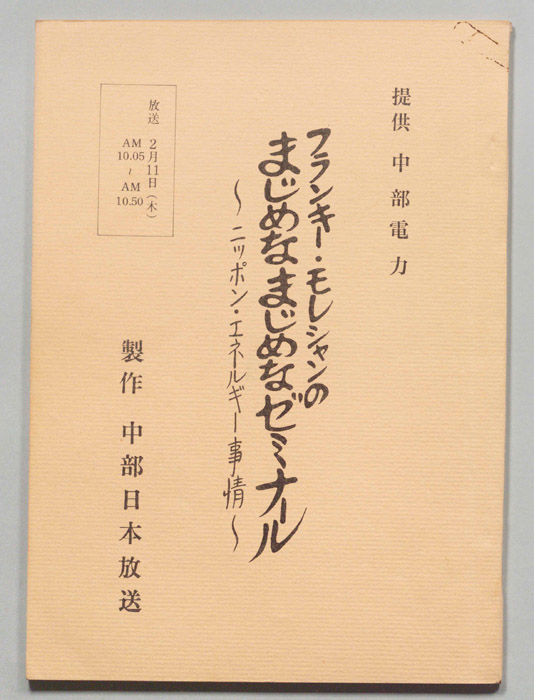 提供 中部電力
フランキー・モレシャンの
まじめなまじめなゼミナール
～ニッポン・エネルギー事情～
放送 2月11日(木)
AM 10.05 ~ AM 10.50
製作 中部日本放送